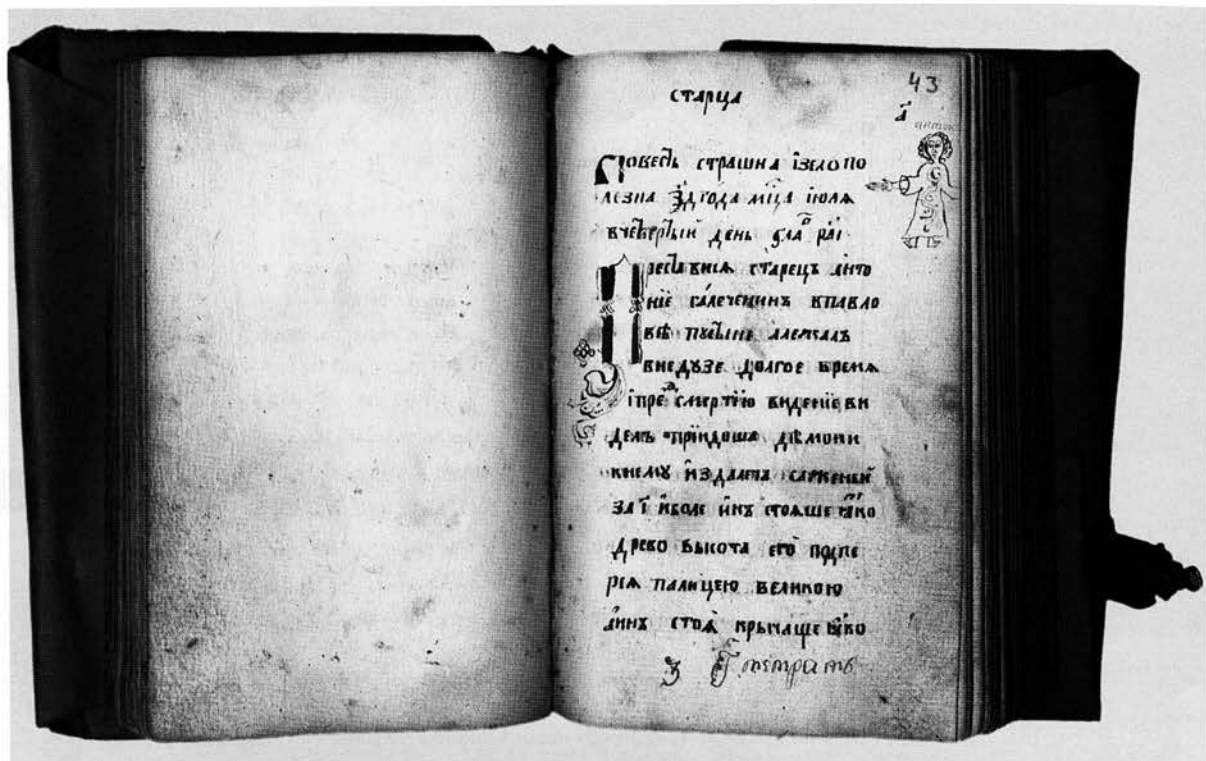 43
старца
а҃
антон
повесть страшна ізело по
лезна ҂зд года мца июля
вчетвертый день
преставися старецъ анто
ние галеченинъ впавло
ве пустыне а лежалъ
внедузе долгое время
і пред смертїю виденїе ви
делъ приидоша дѣмони
кнему издалеча
за и иболе инъ стояше яко
древо высота его подпе
рся палицею великою
а инъ стоя крычаше яко
з тетрать